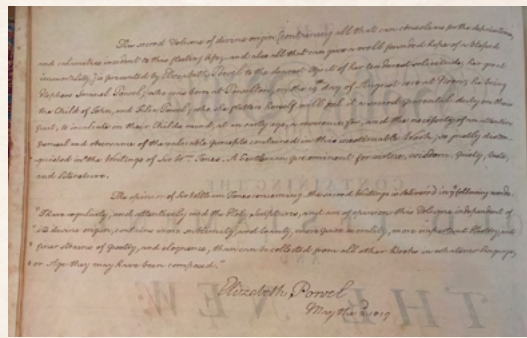 This sacred Volume of divine origin (containing all that can console us for the deprivations,
and calamities incident to this fleeting life, and also all that can give a well founded hope of a blessed
immortality,) is presented by Elizabeth Powel to the dearest object of her tenderest solicitude, her great
Nephew Samuel Powel; who was born at Powelton, on the day of August 1818 at Noon, he being
the Child of John, and Julia Powel; who she flatters herself will feel it a sacred parental duty on their
part, to inculcate on their Childs mind, at an early age, a reverence for, and the necessity of an attentive
perusal and observance of the valuable precepts contained in this inestimable Work; so justly distin-
guished in the Writings of Sir Wm. Jones. A Gentleman preeminent for virtue, wisdom, piety, taste,
and Literature.
The opinion of Sir William Jones concerning the sacred Writings is delivered in ye following words.
"I have regularly, and attentively read the Holy Scriptures, and am of opinion this Volume independent of
"its divine origin, contains more sublimity, and beauty, more pure morality, more important History, and
"finer strains of Poetry, and eloquence, than can be collected from all other Books in whatever language,
"or Age they may have been composed."
Elizabeth Powel
May the 1819
CONTAINING THE
AND
THE NEW: